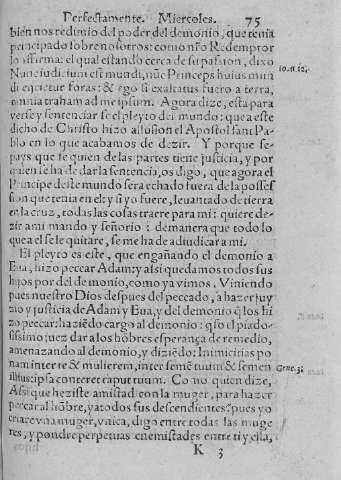 Perfectamente. Miercoles. 75
bien nos redimio del poder del demonio, que tenia
principado sobre nosotros: como nr̃o Redemptor
lo affirma: el qual estando cerca de su passion, dixo
Nunc iudicium est mundi, nũc Princeps huius mun
di eijcietur foras: & ego si exaltatus fuero à terra,
omnia traham ad me ipsum. Agora dize, esta para
verse y sentenciar se el pleyto del mundo: que a este
dicho de Christo hizo allusion el Apostol sant Pa-
blo en lo que acabamos de dezir. Y porque se-
pays que se quien de las partes tiene justicia, y por
quien se ha de dar la sentencia, os digo, que agora el
Principe deste mundo sera echado fuera de la posses
sion que tenia en el: y si yo fuere, leuantado de tierra
en la cruz, todas las cosas traere para mi: quiere de-
zir a mi mando y señorio: demanera que todo lo
que a el se le quitare, se me ha de adiudicar a mi.
El pleyto es este, que engañando el demonio a
Eua, hizo peccar Adam: y assi quedamos todos sus
hijos por del demonio, como ya vimos. Viniendo
pues nuestro Dios despues del peccado, a hazer juy
zio y justicia de Adam y Eua, y del demonio q̃ los hi
zo peccar: haziẽdo cargo al demonio: q̃so el piado-
sissimo juez dar a los hõbres esperança de remedio,
amenazando al demonio, y diziẽdo: Inimicitias po
nam inter te & mulierem, inter semẽ tuum & semen
illius: ipsa conteret caput tuum. Como quien dize,
Assi que heziste amistad con la muger, para hazer
peccar al hõbre, y a todos sus descendientes? pues yo
criare vna muger, vnica, digo entre todas las muge
res, y pondre perpetuas enemistades entre ti y ella,
K 3
Io. n. 12.
Gene. 3.